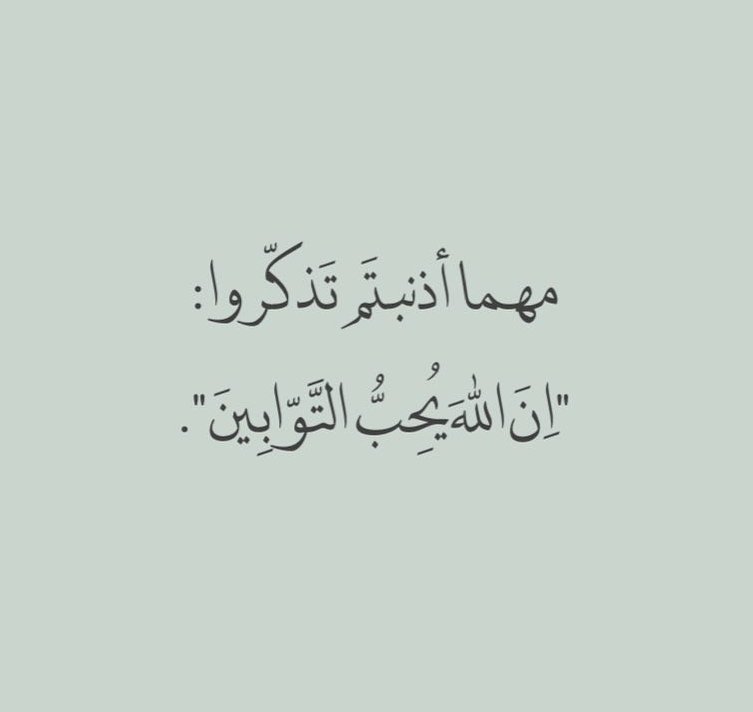 مهما أذنبتَم تَذكّروا:
"اِنَ اللهَ يُحِبُّ التَّوّابِينَ".